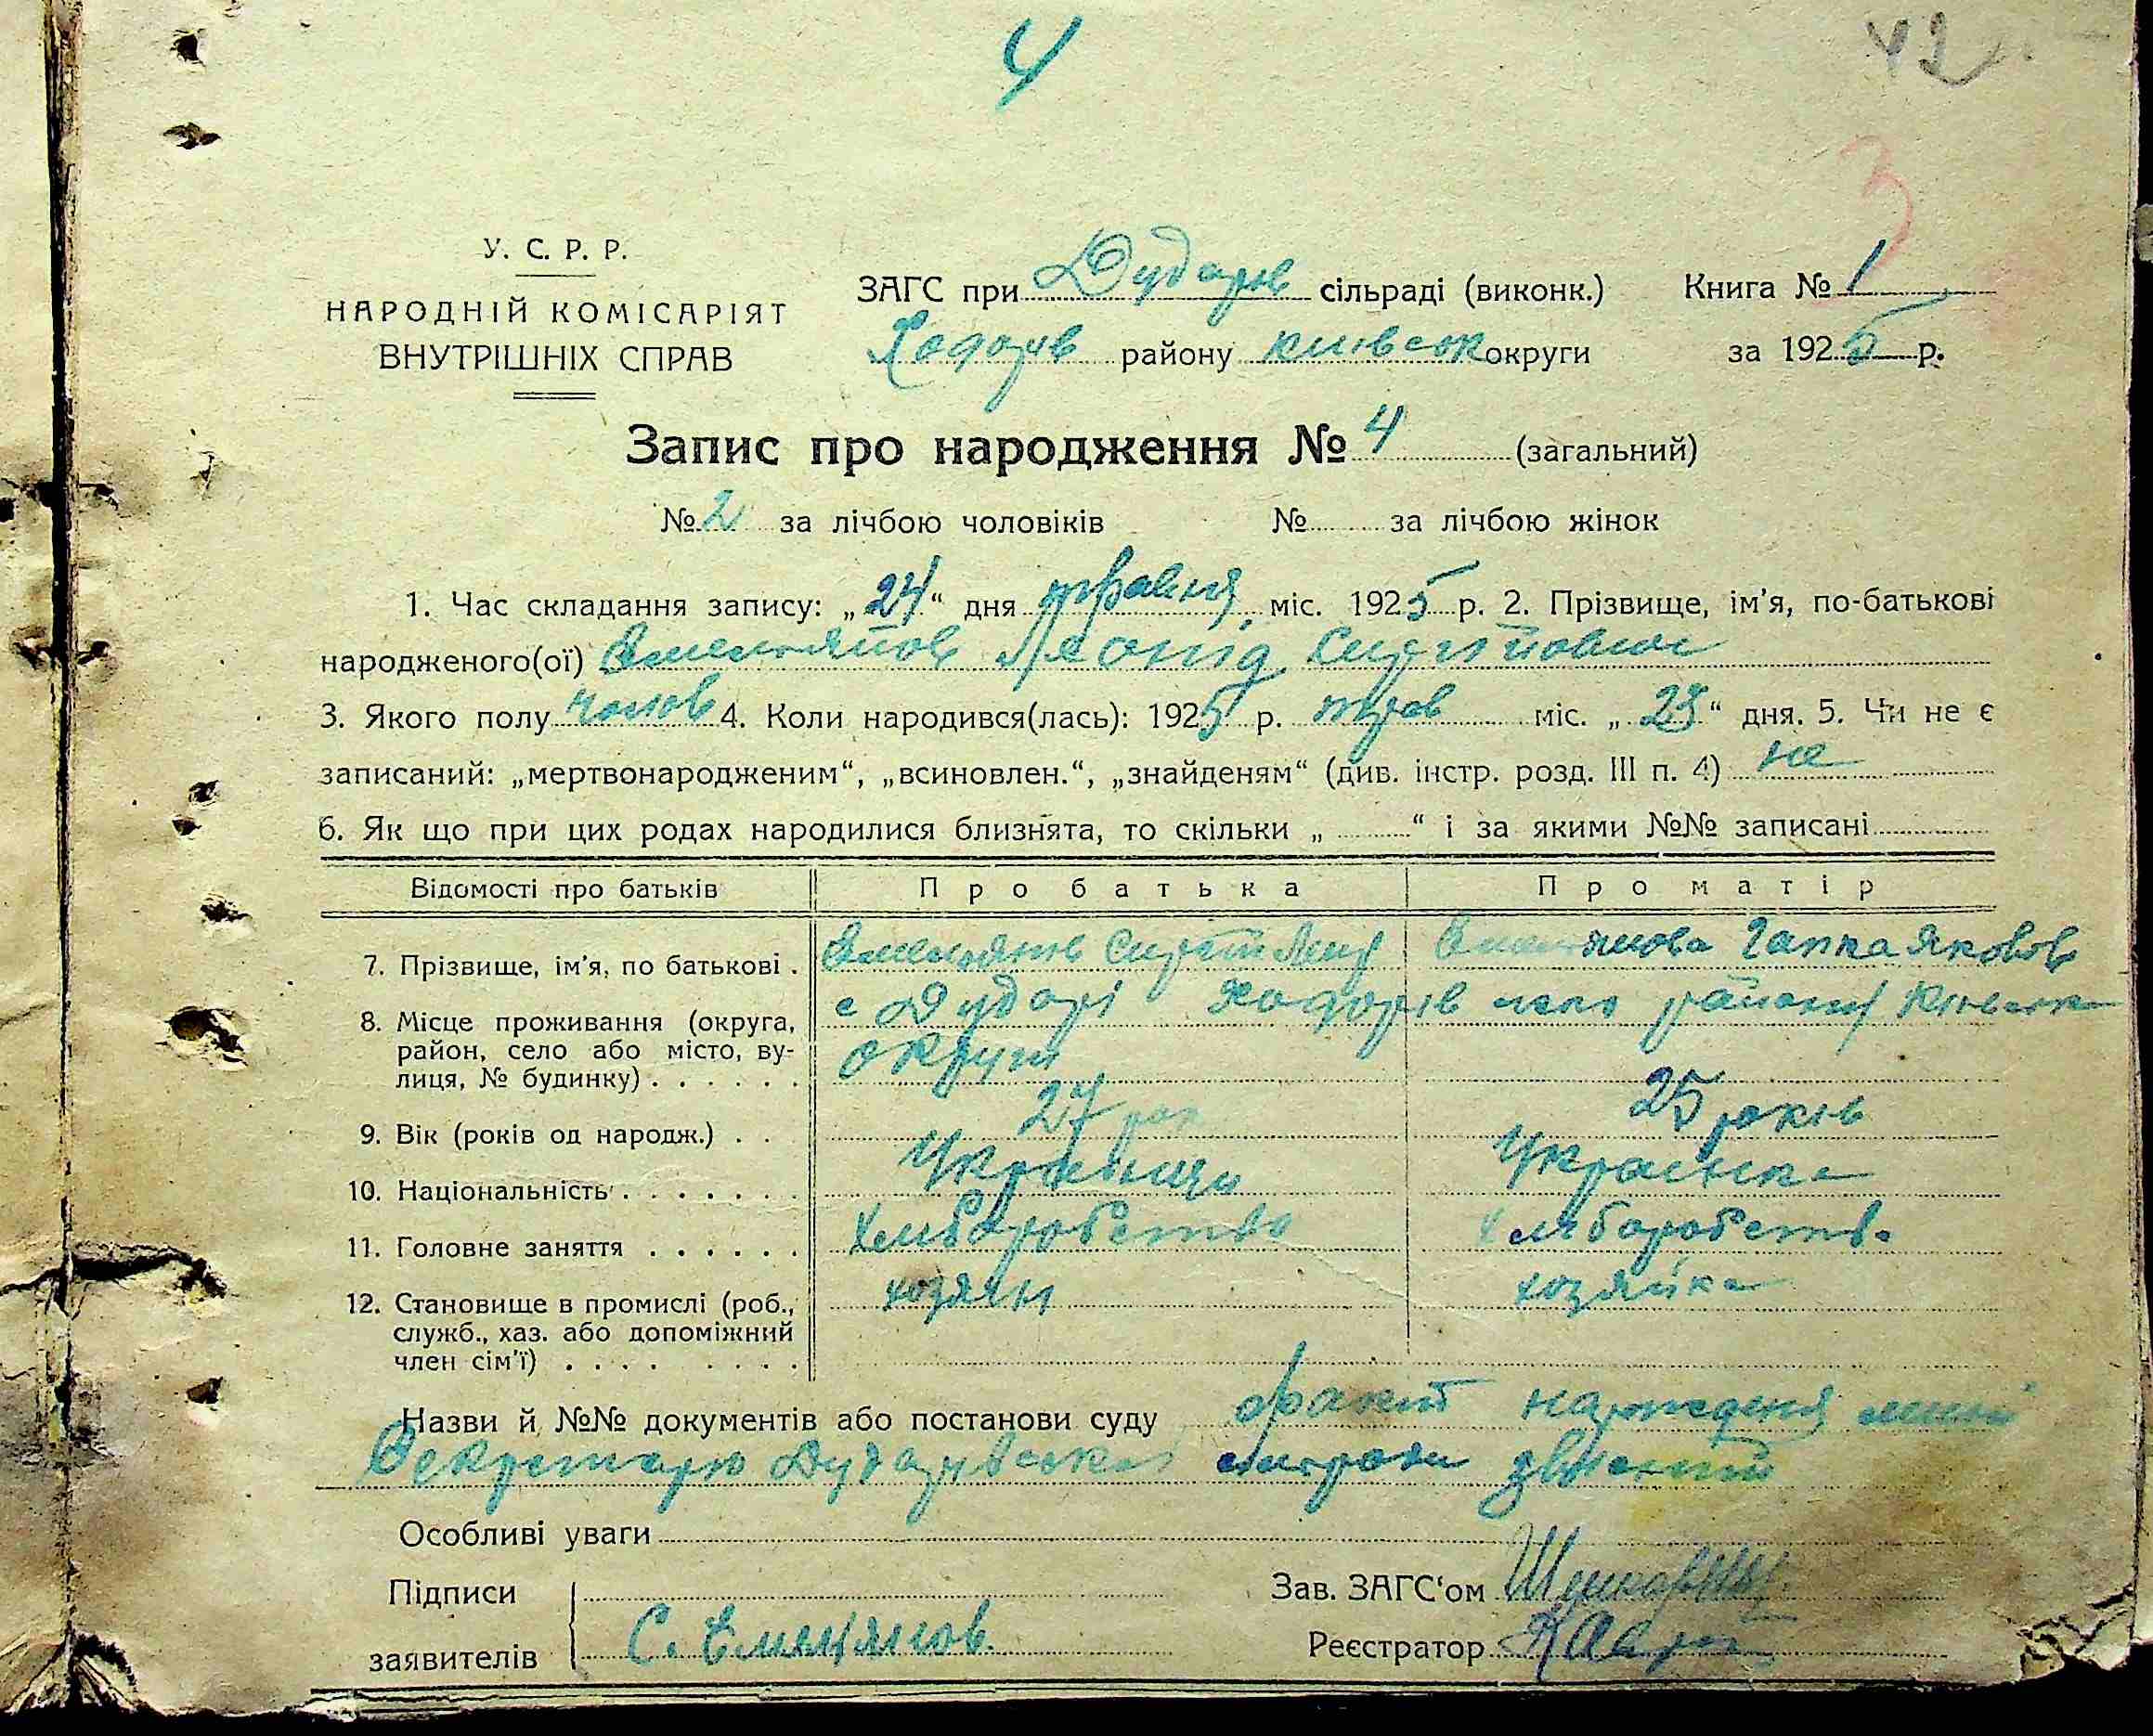 4
42
3
У. С. Р. Р.
НАРОДНІЙ КОМІСАРІЯТ
ВНУТРІШНІХ СПРАВ
ЗАГС при Дударів сільраді (виконк.) Книга № 1
Ходорів району київськ округи за 1925 р.
Запис про народження № 4 (загальний)
№ 2 за лічбою чоловіків № за лічбою жінок
1. Час складання запису: „24“ дня травня міс. 1925 р. 2. Прізвище, ім'я, по-батькові
народженого(ої) Омельянов Леонід Сергійович
3. Якого полу чолов 4. Коли народився(лась): 1925 р. трав міс. „23“ дня. 5. Чи не є
записаний: „мертвонародженим“, „всиновлен.“, „знайденям“ (див. інстр. розд. III п. 4) не
6. Як що при цих родах народилися близнята, то скільки „ “ і за якими №№ записані
Відомості про батьків Про батька Про матір
7. Прізвище, ім'я, по батькові . Омельянов Сергій Омельянова Гапка Яковов
8. Місце проживання (округа, с Дударі Ходорів району Київськ
район, село або місто, ву- округи
лиця, № будинку) . . . . . .
9. Вік (років од народж.) . . 27 рок 25 років
10. Національність . . . . . . . Українци Українка
11. Головне заняття . . . . . . Хлиборобство хлиборобств.
12. Становище в промислі (роб., хозяин хозяйка
служб., хаз. або допоміжний
член сім'ї) . . . . . . . .
Назви й №№ документів або постанови суду Факт нарождения
Секретарю Дударівської сильради звісний
Особливі уваги
Підписи Зав. ЗАГС'ом
заявителів С. Емелянов. Реєстратор